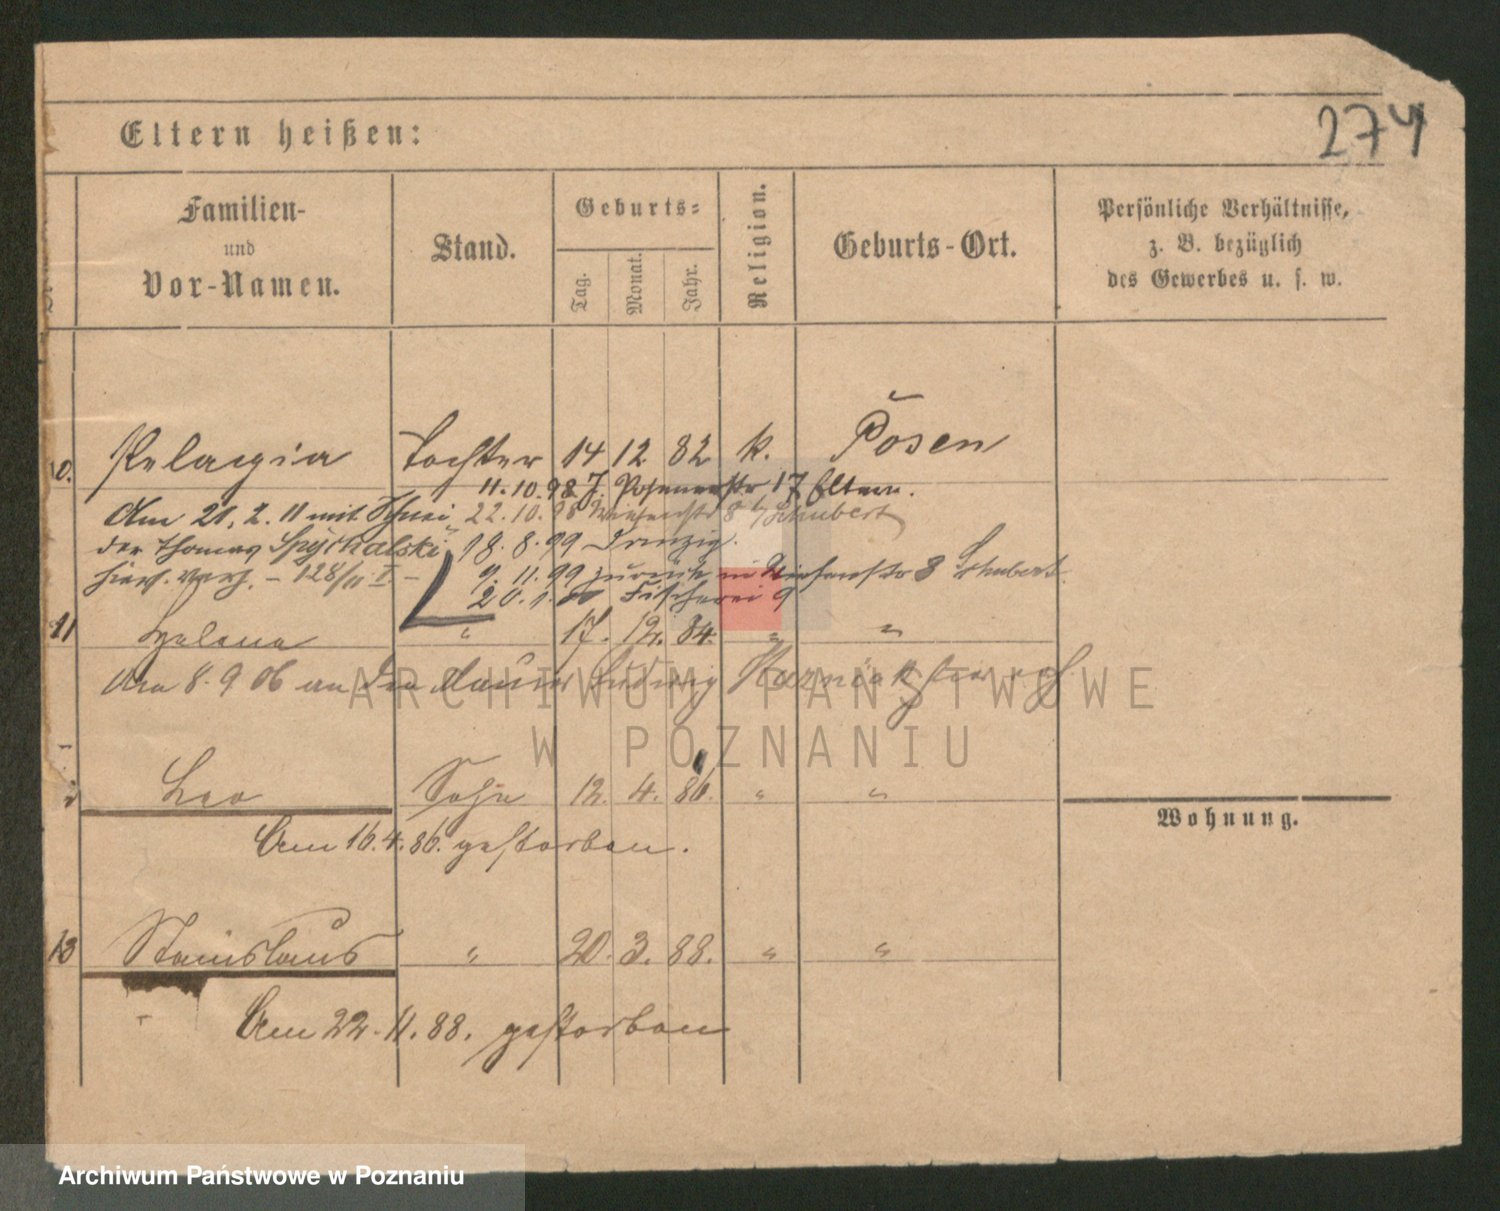 274
Eltern heißen:
Familien-
und
Vor-Namen.
Stand.
Geburts-
Tag.
Monat.
Jahr.
Religion.
Geburts-Ort.
Persönliche Verhältnisse,
z. B. bezüglich
des Gewerbes u. s. w.
Pelagia Tochter 14 12. 82 k. Posen
11.10.98 J. Posenerstr 17 Eltern.
Am 21. 2. 11 mit Schnei
22.10.98 Wiesenstr 8 b/Schubert
der Thomas Spychalski
18. 8. 99 Danzig.
hier. verh. - 128/11 I -
9. 11. 99 zurück in Wiesenstr 8 Schubert
20. 1. 00 Fischerei 9
11 Helena " 17. 12. 84. " "
Am 8. 9 06 an den Maurer Ludwig
Leo Sohn 12. 4. 86. " "
Am 16. 4. 86. gestorben.
Wohnung.
13 Stanislaus " 20. 3. 88. " "
Am 22. 11. 88. gestorben
ARCHIWUM PAŃSTWOWE
W POZNANIU
Archiwum Państwowe w Poznaniu